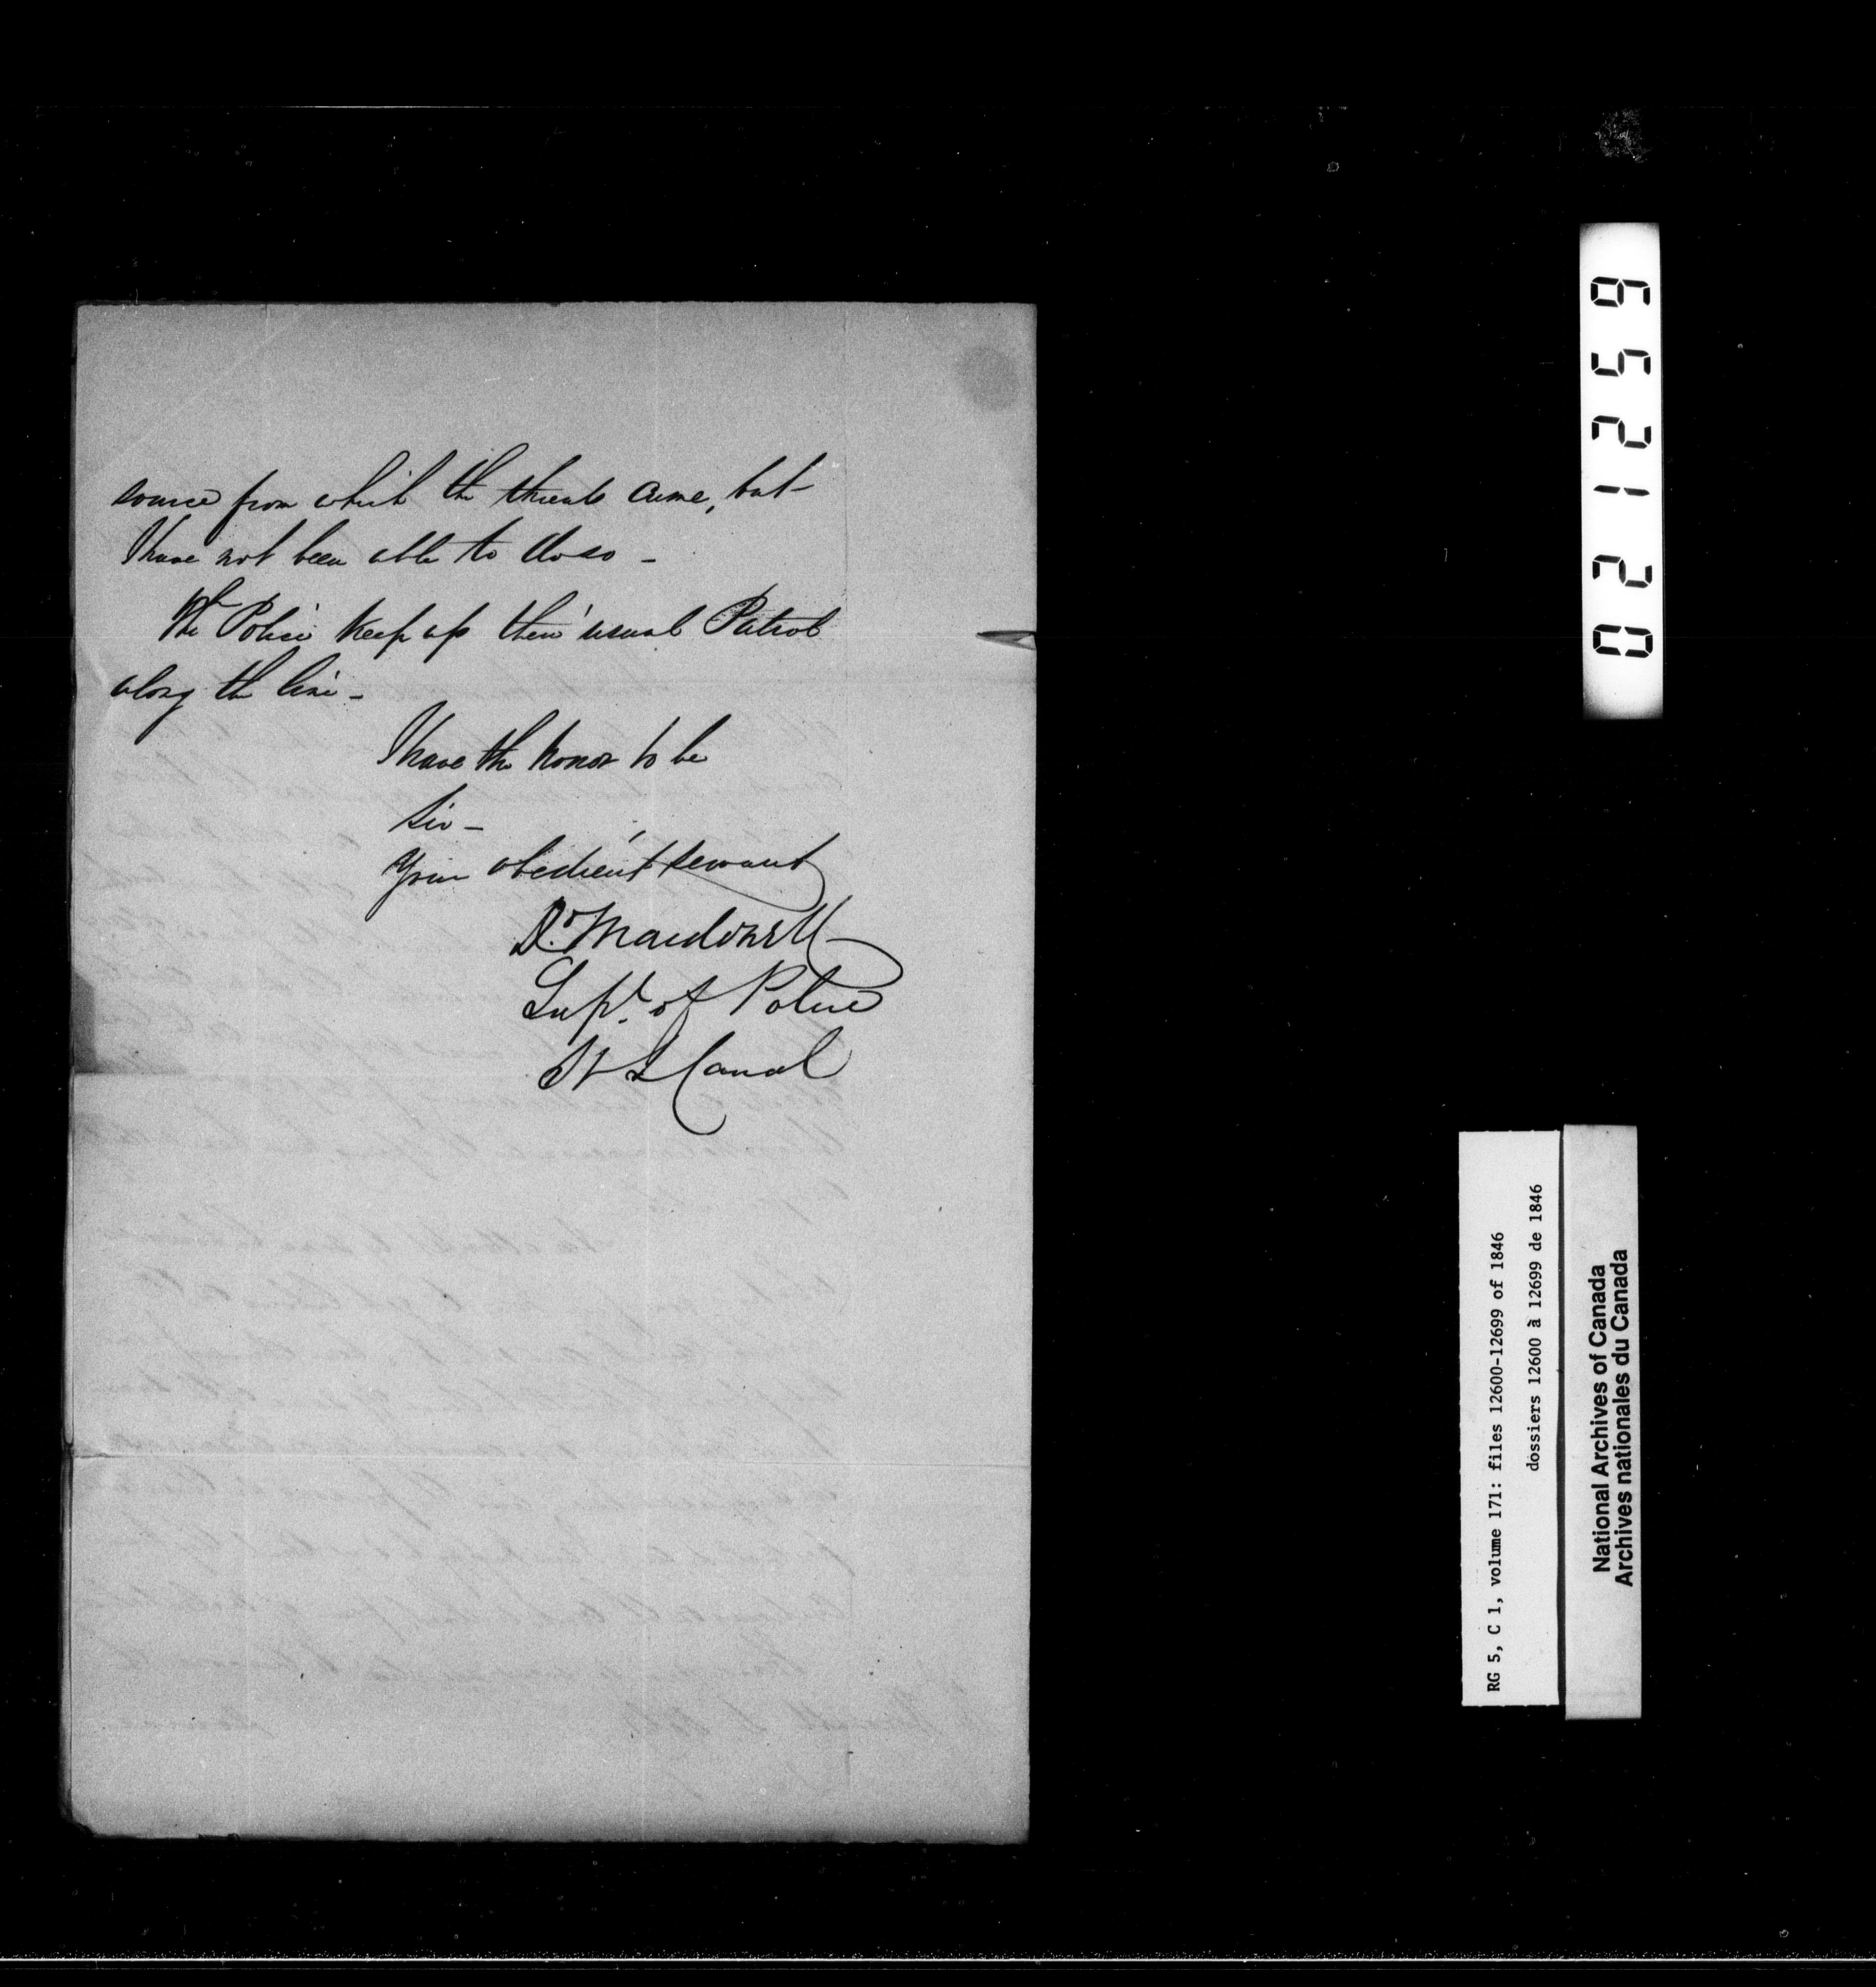 source from which the threats came, but
I have not been able to do so -
The Police keep up their usual Patrol
along the line -
I have the honor to be
Sir -
Your obedient servant
Dr. Macdonell
Supt. of Police
W L Canal
021259
RG 5, C 1, volume 171: files 12600-12699 of 1846
dossiers 12600 à 12699 de 1846
National Archives of Canada
Archives nationales du Canada